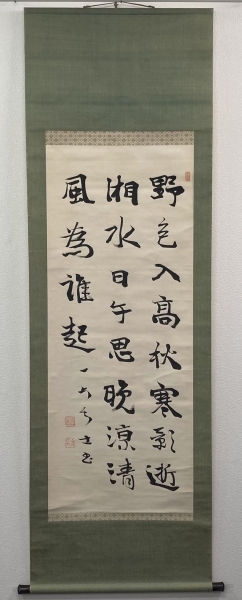 野色入高秋寒影逝
湘水日午思晚涼清
風為誰起